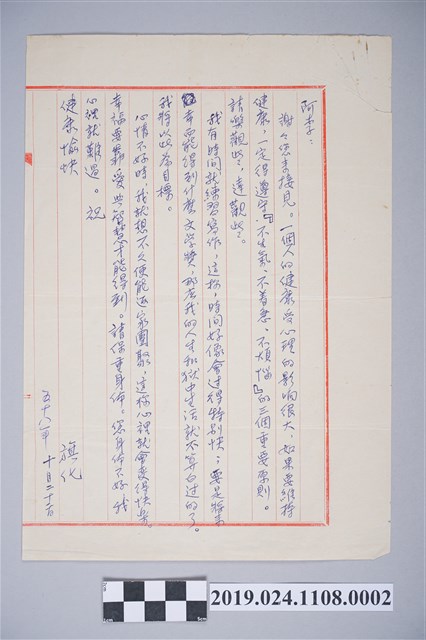 阿李:
謝々您來接見。一個人的健康受心理的影响很大,如果要維持
健康,一定得遵守『不生氣、不着急、不煩惱』的三個重要原則。
請樂觀些,達觀些。
我有時間就練習寫作,這樣,時間好像會過得特別快;要是將來
幸而能得到什麼文学獎,那麼我的人生和獄中生活就不算白过的了。
我將以此為目標。
心情不好時,我就想不久便能返家團聚,這樣心裡就會变得快樂。
幸福要靠愛與智慧才能得到。請保重身体。您身体不好我
心裡就難過。祝
健康愉快
旗化
五十八年 十月二十日
2019.024.1108.0002